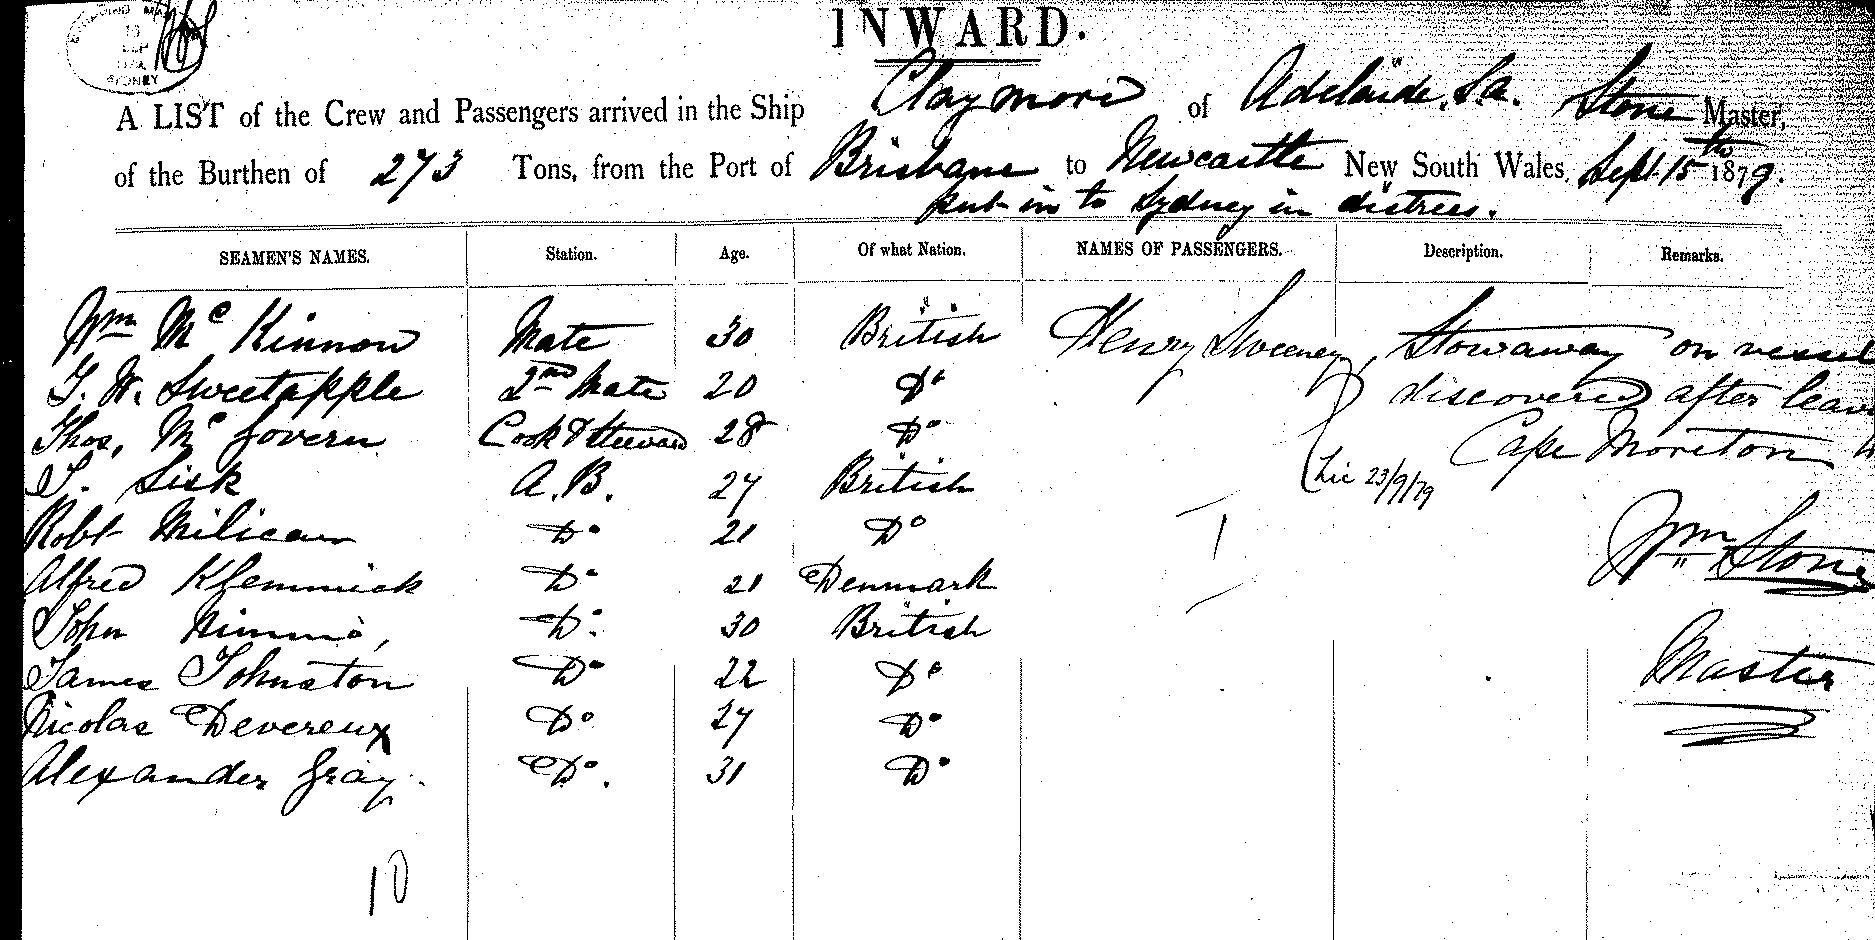 SYDNEY
INWARD.
A LIST of the Crew and Passengers arrived in the Ship Claymore of Adelaide. S.a. Stone Master,
of the Burthen of 273 Tons, from the Port of Brisbane to Newcastle New South Wales, Sept. 15th 1879.
put in to Sydney in distress.
SEAMEN'S NAMES. Station. Age. Of what Nation. NAMES OF PASSENGERS. Description. Remarks.
Wm Mc Kinnon Mate 30 British Henry Sweeney, Stowaway on vessel
J. W. Sweetapple 2nd Mate 20 Do discovered after leavi
Thos. Mc Govern Cook & Steward 28 Do Cape Moreton
J. Sisk A.B. 27 British 23/9/79
Robt Milican Do 21 Do Wm Stone
Alfred Do 21 Denmark
John Nimmo, Do. 30 British
James Johnston Do 22 Do Master
Nicolas Devereux Do 27 Do
Alexander Gray. Do. 31 Do
10